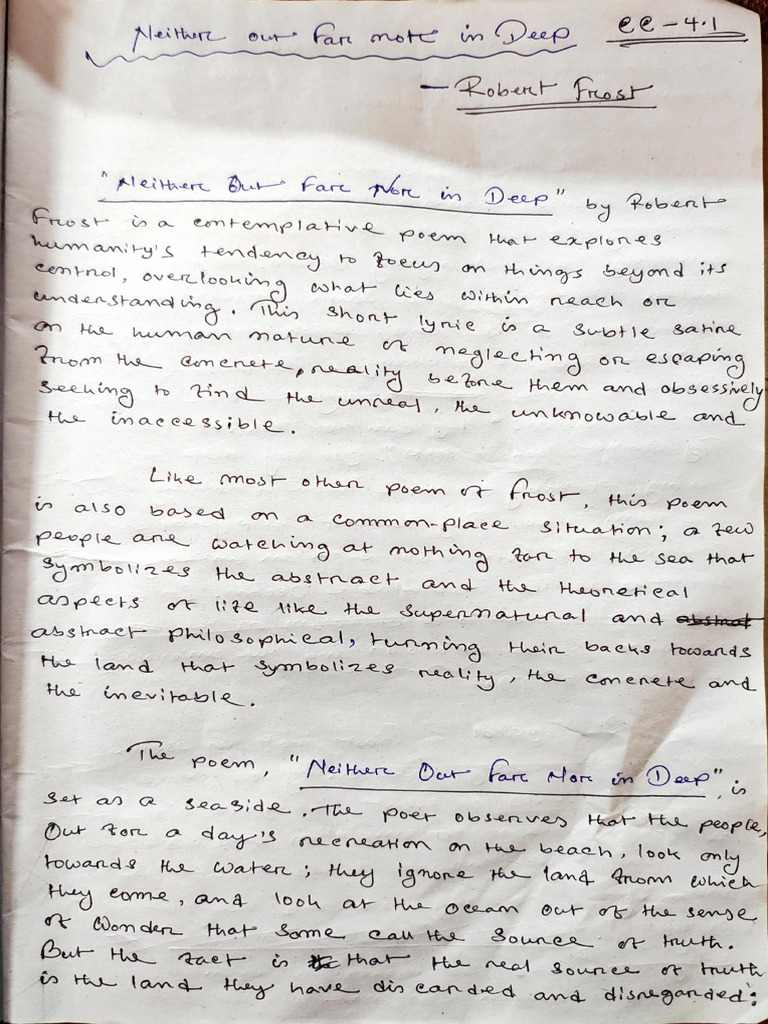 Neither out Far nore in Deep CC-4.1
- Robert Frost
"Neither Out Far Nor in Deep" by Robert
Frost is a contemplative poem that explores
humanity's tendency to focus on things beyond its
control, overlooking what lies within reach or
understanding. This short lyric is a subtle satire
on the human nature of neglecting or escaping
from the concrete, reality before them and obsessively
seeking to find the unreal, the unknowable and
the inaccessible.
Like most other poem of Frost, this poem
is also based on a common-place situation; a few
people are watching at nothing far to the sea that
symbolizes the abstract and the theoretical
aspects of life like the supernatural and abstract
abstract philosophical, turning their backs towards
the land that symbolizes reality, the concrete and
the inevitable.
The poem, "Neither Out Far Nor in Deep", is
set as a seaside. The poet observes that the people,
Out for a day's recreation on the beach, look only
towards the water; they ignore the land from which
they come, and look at the ocean out of the sense
of wonder that some call the source of truth.
But the fact is that the real source of truth
is the land they have discarded and disregarded: